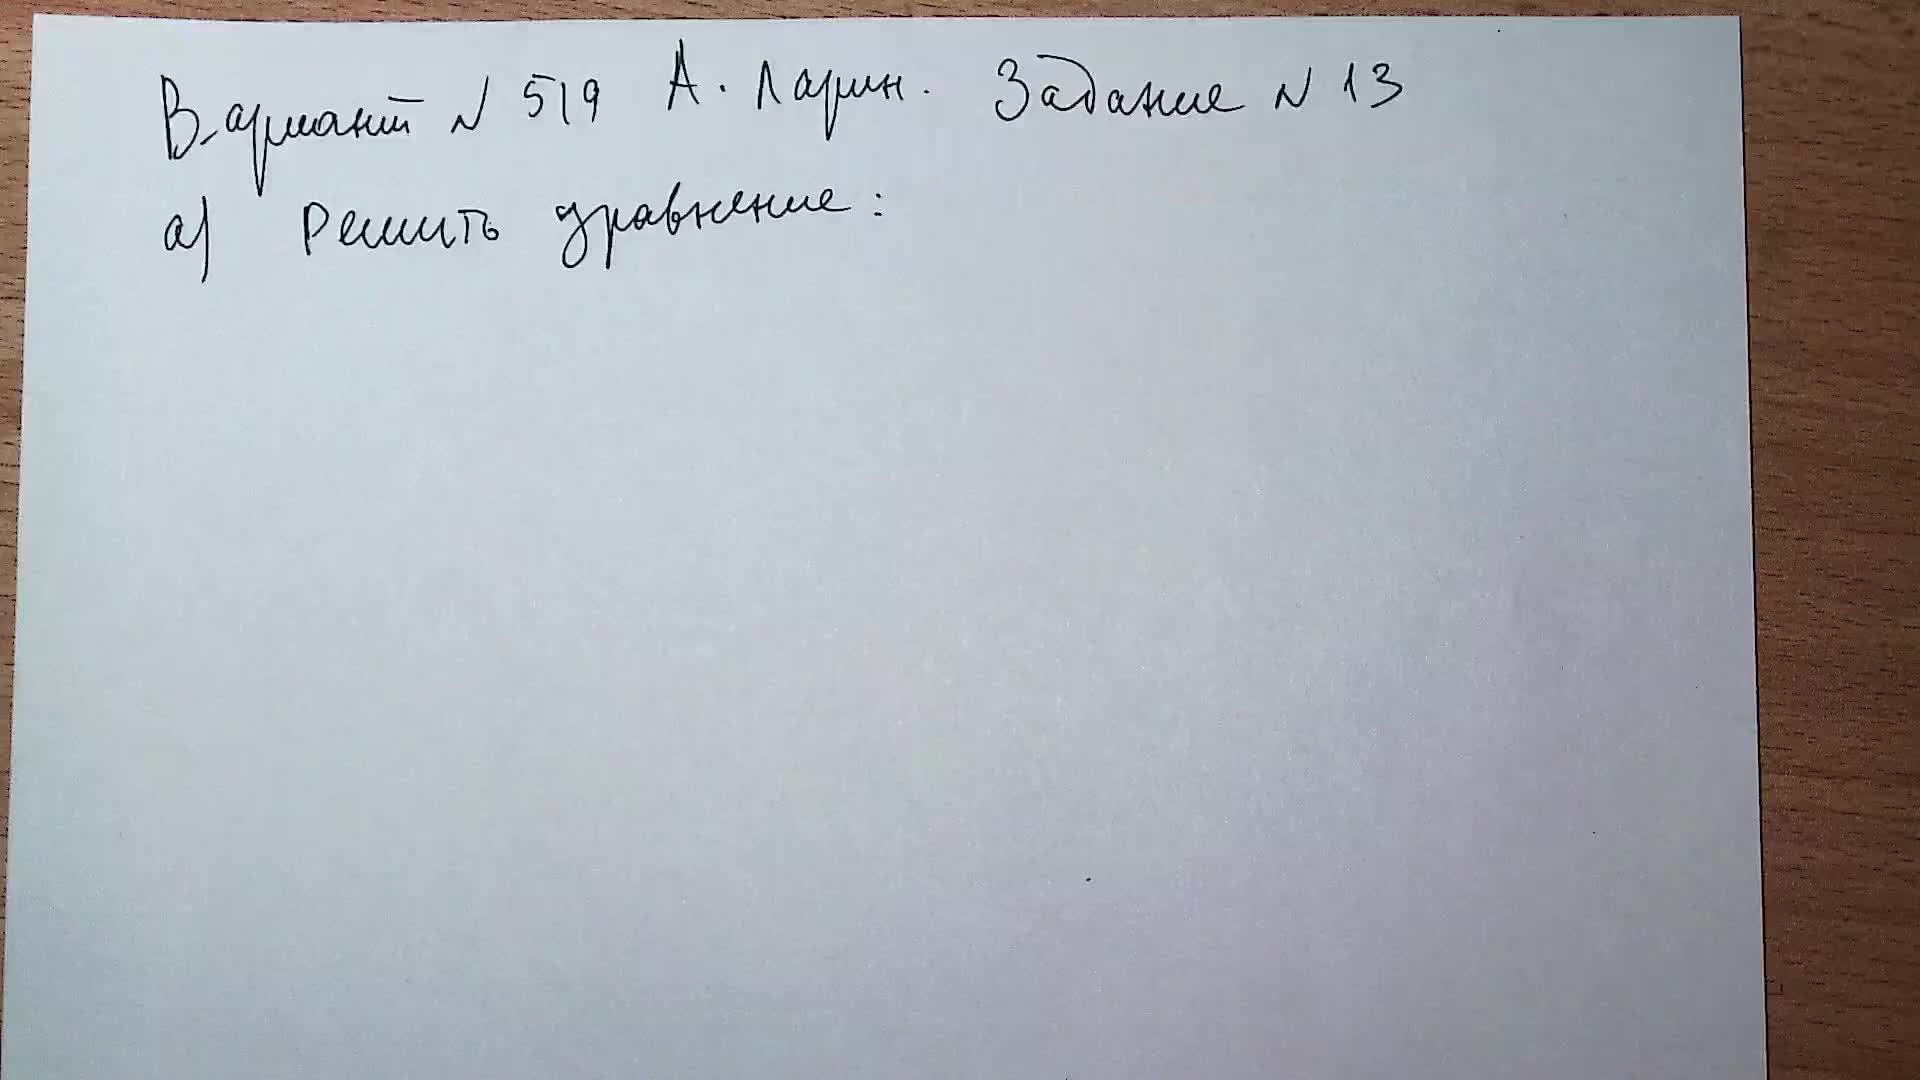 Вариант N 519 А. Ларин. Задание N 13
а) Решить уравнение: